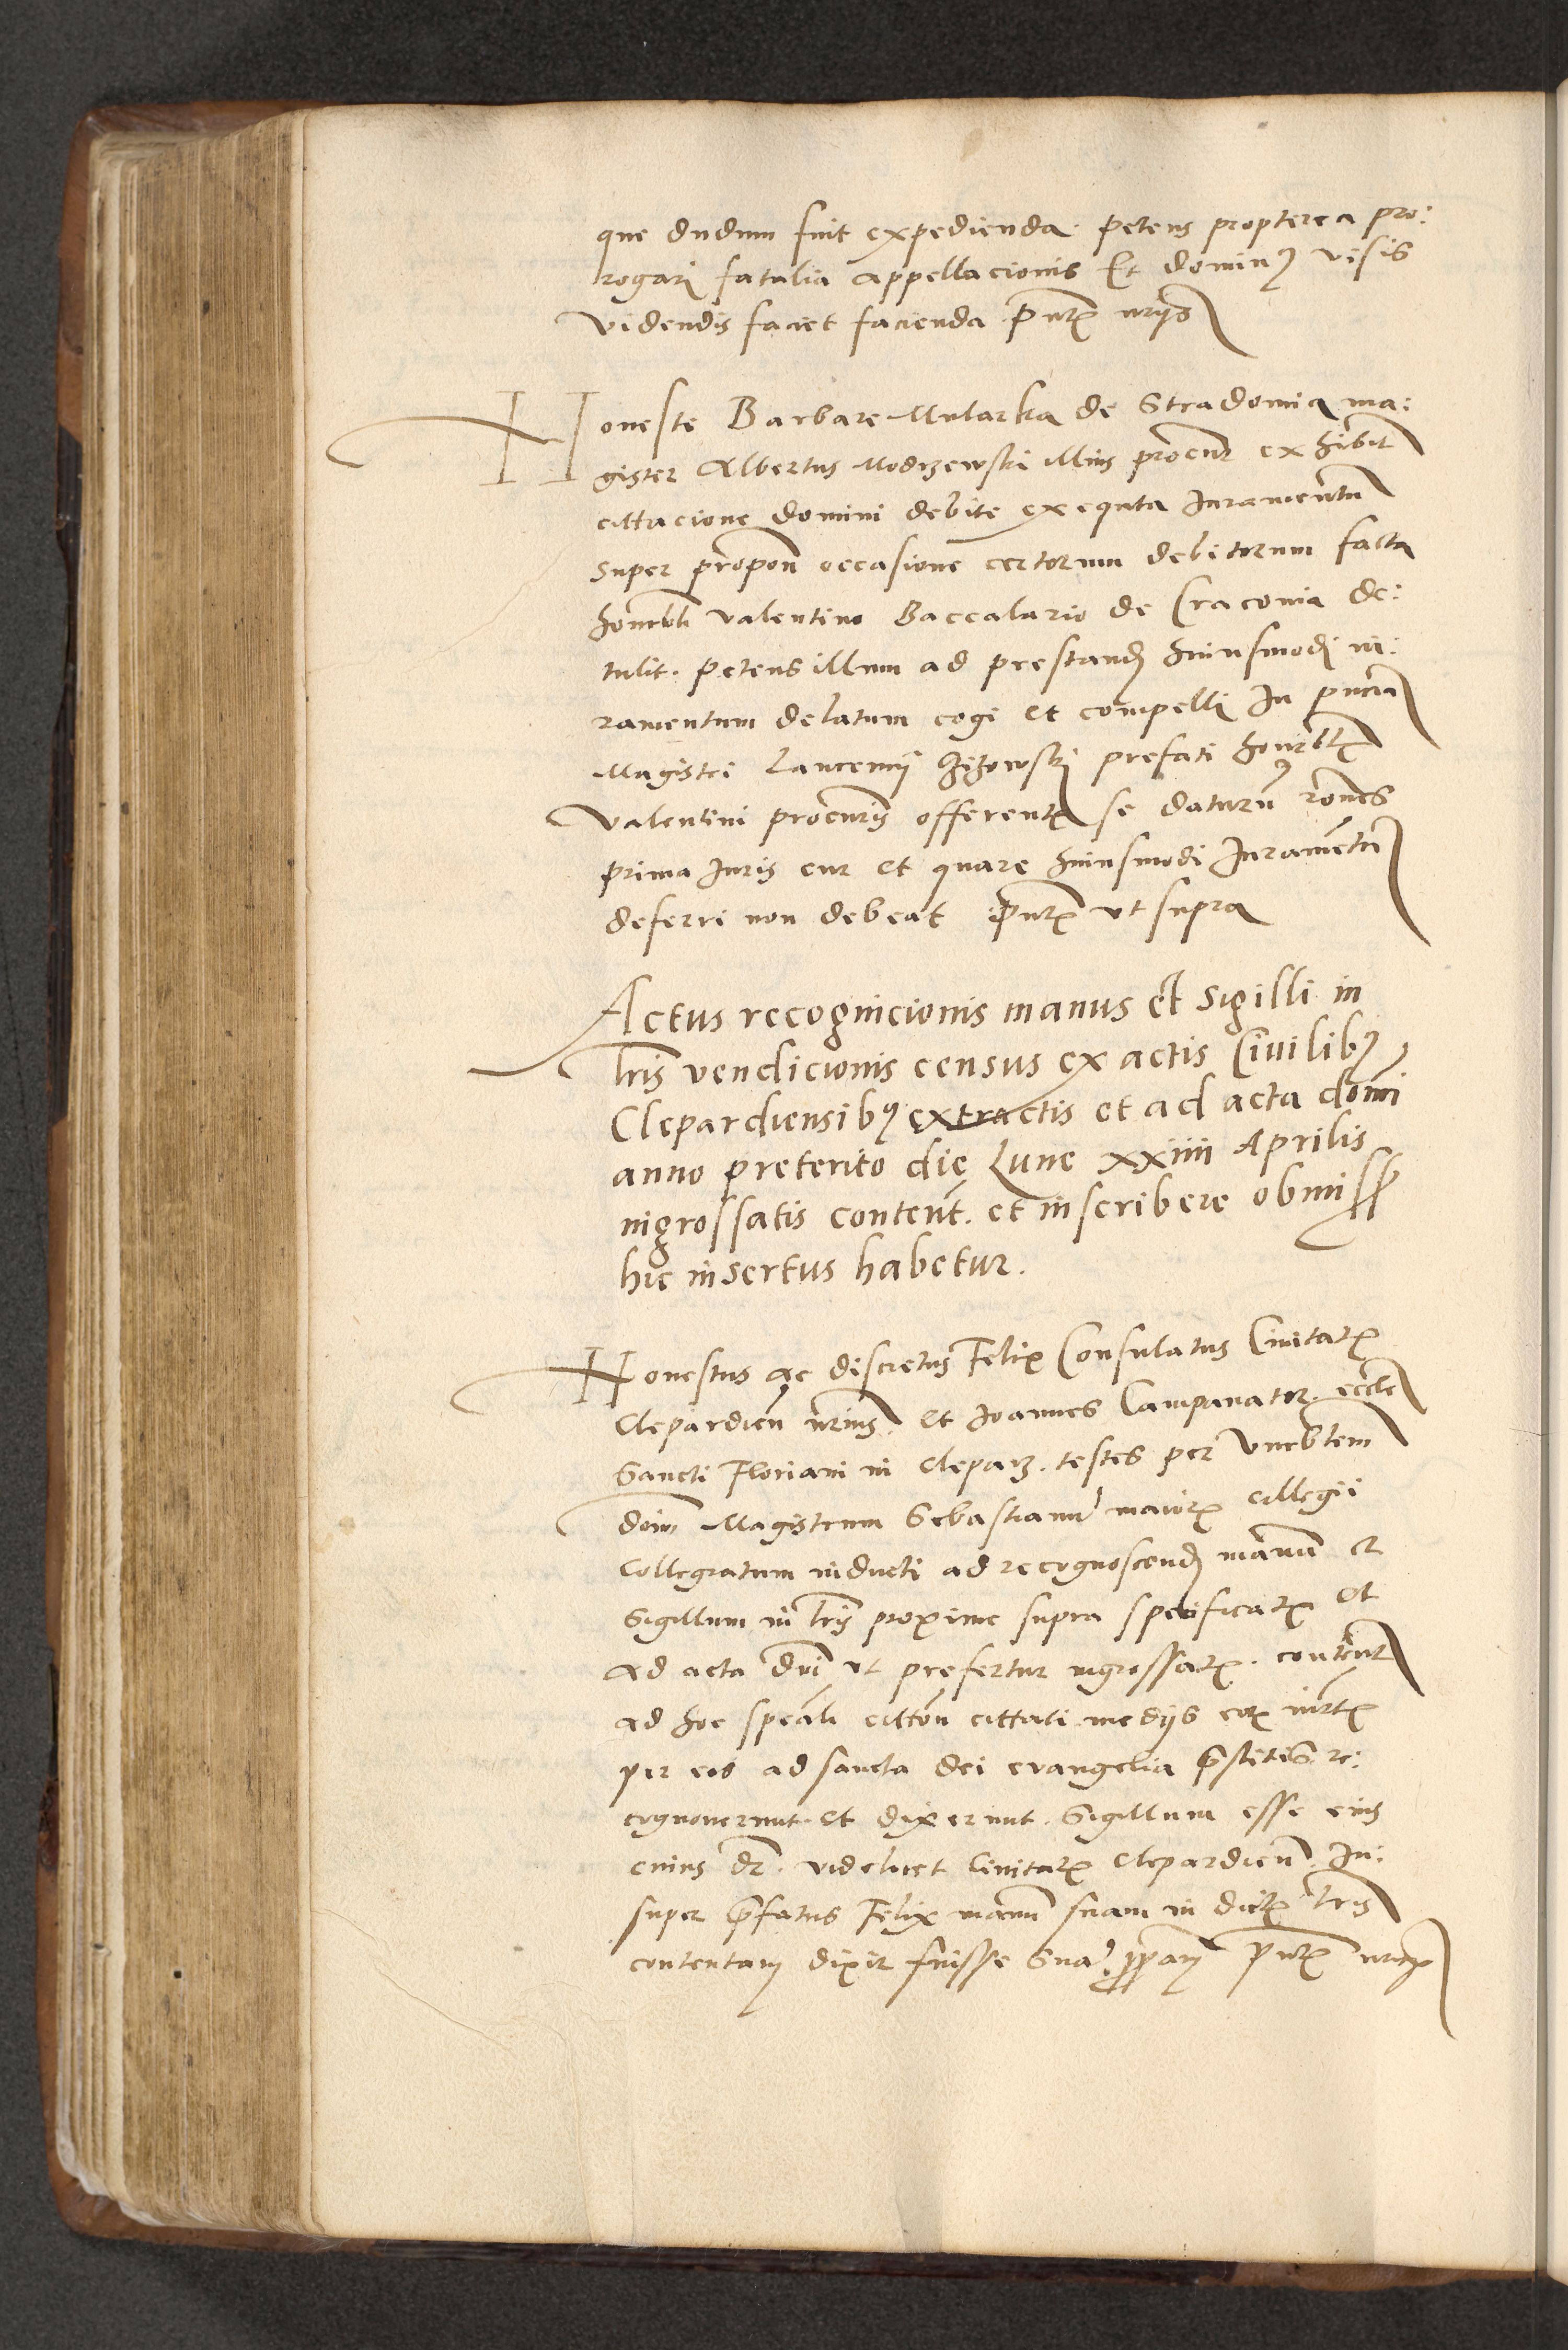 que dudum fuit expedienda petens propterea pro:
rogari fatalia appellacionis Et dominꝰ visis
videndis faciet facienda pñtꝫ
Honeste Barbare Mularka de Stradomia ma:
gister Albertus Modrzewski illius procur̃ exhibit
cittacione domini debite exequta Iuramentũ
super propoñ occasione certorum debitorum facta
honorbli valentino Baccalario de Cracovia de:
tulit. petens illum ad prestand huiusmodi iu:
ramentum delatum cogi et compelli In pñcia
Magistri Laurencij prefati honorblis
valentini procuris offerentꝫ se daturũ rõnes
prima Iuris cur et quare huiusmodi Iuramentũ
deferri non debeat pñtꝫ ut supra
Actus recognicionis manus et sigilli in
lrĩs vendicionis census ex actis Civilibꝰ
Clepardiensibꝰ extractis et ad acta domĩ
anno preterito die Lune xxiiii Aprilis
ingrossatis conteñt. et inscribere obmiss
hic insertus habetur.
Honestus ac discretus Felix Consulatus Civitatꝫ
Clepardieñ nr̃ius et Ioannes Campanator eccle
Sancti Floriani in Cleparz. testes per vnerbtem
doim Magistrum Sebastianũ maiorꝫ collegii
Collegiatum inducti ad recognoscend manũ et
Sigillum in lrĩs proxime supra specificatꝫ et
ad acta dnĩ ut prefertur ingrossatꝫ. contentꝫ
ad hoc speãli cittõn cittati medijs eorꝫ iurtꝫ
per eos ad sancta dei evangelia p̃stitis re:
cognoverunt et dixerunt. Sigillum esse eius
cuius dr̃. videlicet Civitatꝫ Clepardieñ. In:
super p̃fatus Felix manũ suam in dictꝫ lrĩs
contentam dixit fuisse suã ꝓpam pñtꝫ